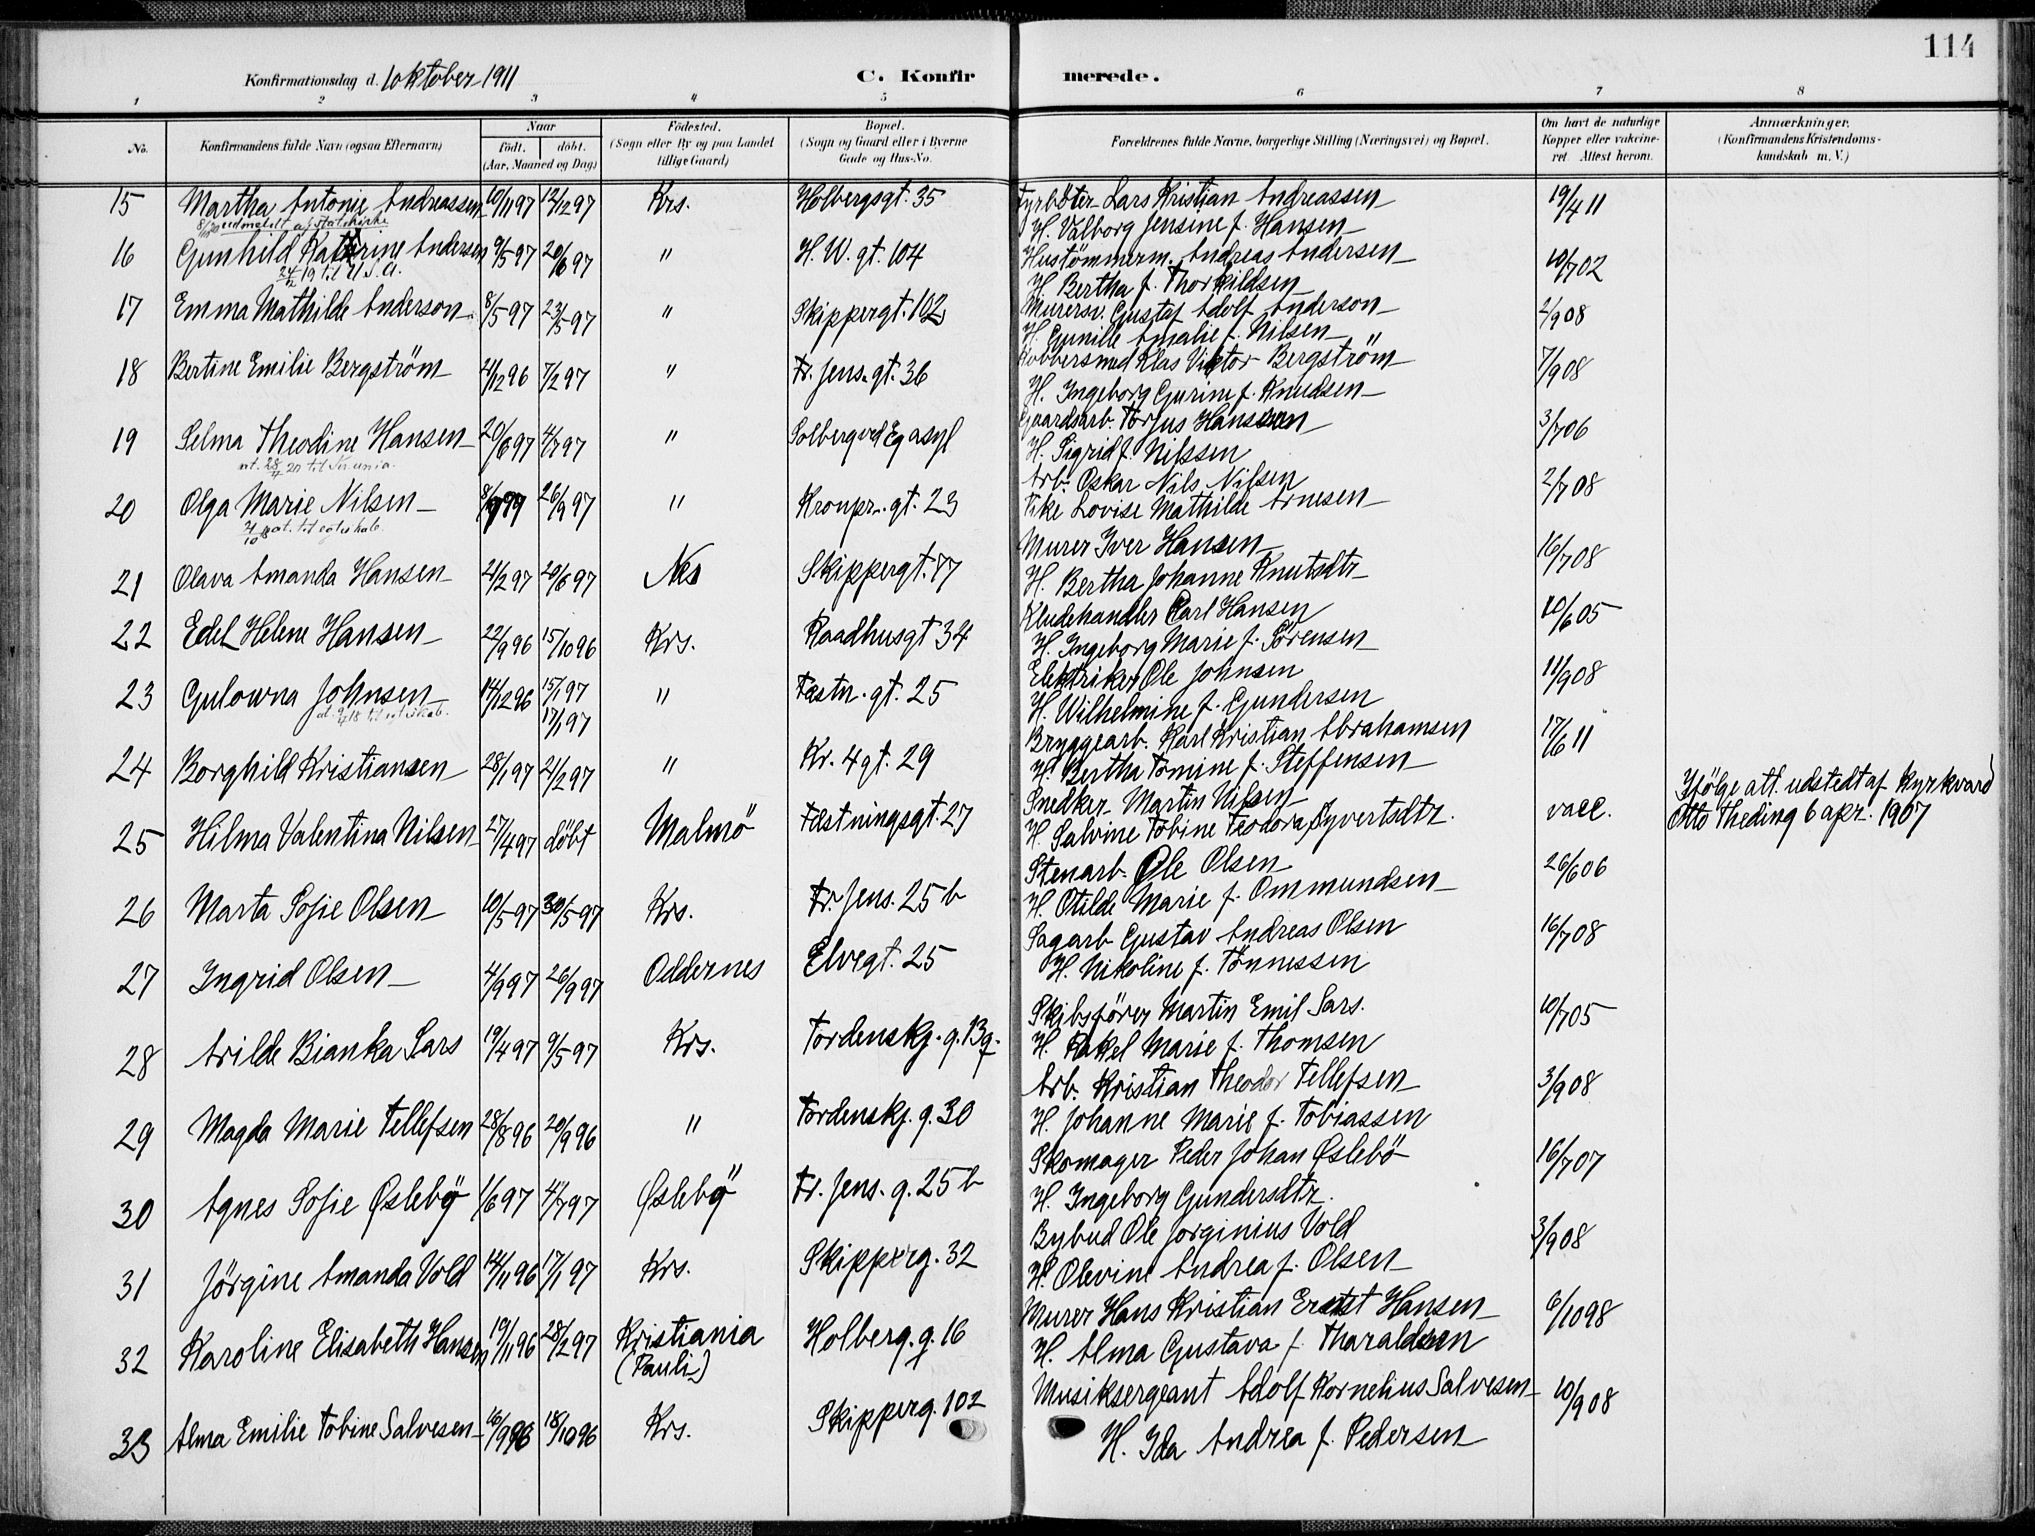 114
Konfirmationsdag d. 1 oktober 1911
C. Konfir merede.
1 2 3 4 5 6 7 8
No. Konfirmandens fulde Navn (ogsaa Efternavn) Naar født. døbt. (Aar, Maaned og Dag) Fødested. (Sogn eller By og paa Landet tillige Gaard) Bopæl. (Sogn og Gaard eller i Byerne Gade og Hus-No. Forældrenes fulde Navne, borgerlige Stilling (Næringsvei) og Bopæl. Om havt de naturlige Kopper eller vakcineret. Attest herom. Anmærkninger. (Konfirmandens Kristendomskundskab m. V.)
15 Martha Antonie Andreassen 10/11 97 12/12 97 Krs. Holbergsgt. 35 Fyrböter Lars Kristian Andreassen 19/4 11
udmeldt af statskirke
H. Valborg Jensine f. Hansen
16 Gunhild Katrine Andersen 9/5 97 20/6 97 " H. W. gt. 104 Hustömmerm. Andreas Andersen 10/7 02
24/2 19 til U.S.A.
H. Bertha f. Thorkildsen
17 Emma Mathilde Anderson 8/5 97 23/5 97 " Skippergt. 102 Murersv. Gustaf Adolf Anderson 2/9 08
H. Gunille Amalie f. Nilsen
18 Bertine Emilie Bergström 21/12 96 7/2 97 " Fr. Jens. gt. 36 Kobbersmed Klas Viktor Bergström 7/9 08
H. Ingeborg Gurine f. Knudsen
19 Selma Theodine Hansen 20/6 97 4/7 97 " Solberg ved Eg asyl Gaardsarb. Torjus Hanssen 3/7 06
H. Sigrid f. Nilssen
20 Olga Marie Nilsen 26/9 97 " Kronpr. gt. 23 Arb. Oskar Nils Nilsen 2/7 08
Pike Lovise Mathilde Arnesen
21 Olava Amanda Hansen 21/2 97 20/6 97 Nes Skippergt. 87 Murer Iver Hansen 16/7 08
H. Bertha Johanne Knutsdtr
22 Edel Helene Hansen 22/9 96 15/10 96 Krs. Raadhusgt 34 Kludehandler Carl Hansen 20/6 05
H. Ingeborg Marie f. Sörensen
23 Gulowna Johnsen 14/12 96 15/1 97 17/1 97 " Fæstn. gt. 25 Elektriker Ole Johnsen 11/9 08
H. Wilhelmine f. Gundersen
24 Borghild Kristiansen 28/1 97 21/2 97 " Kr. 4 gt. 29 Bryggearb. Karl Kristian Abrahamsen 17/6 11
H. Bertha Tomine f. Steffensen
25 Hilma Valentina Nilsen 27/4 97 döbt Malmö Fæstningsgt. 27 Snedker Martin Nilsen vacc. Ifölge att. udstedt af Kyrkvard
H. Salvine Tobine Teodora Syvertsdtr. Otto Theding 6 apr. 1907
26 Marta Sofie Olsen 10/5 97 30/5 97 Krs. Fr. Jens. 25 b Stenarb. Ole Olsen 26/6 06
H. Otilde Marie f. Ommundsen
27 Ingrid Olsen 4/9 97 26/9 97 Oddernes Elvegt. 25 Sagarb Gustav Andreas Olsen 16/7 08
H. Nikoline f. Tönnessen
28 Arilde Bianka Sars 19/4 97 9/5 97 Krs. Tordenskj. g. 13 Skibsförer Martin Emil Sars. 10/7 05
H. Rakel Marie f. Thomsen
29 Magda Marie Tellefsen 28/8 96 20/9 96 " Tordenskj. g. 30 Arb. Kristian Theodor Tellefsen 3/9 08
H. Johanne Marie f. Tobiassen
30 Agnes Sofie Øslebö 1/6 97 4/7 97 Øslebö Fr. Jens. g. 25 b Skomager Peder Johan Øslebö 16/7 07
H. Ingeborg Gundersdtr.
31 Jörgine Amanda Vold 14/11 96 17/1 97 Krs. Skipperg. 32 Bybud Ole Jorginius Vold 3/9 08
H. Olevine Andrea f. Olsen
32 Karoline Elisabeth Hansen 19/11 96 28/2 97 Kristiania (Pauli) Holberg. g. 16 Murer Hans Kristian Ernst Hansen 6/10 98
H. Alma Gustava f. Tharaldsen
33 Alma Emilie Tobine Salvesen 16/9 96 18/10 96 Krs. Skipperg. 102 Musiksergeant Adolf Kornelius Salvesen 10/9 08
H. Ida Andrea f. Pedersen